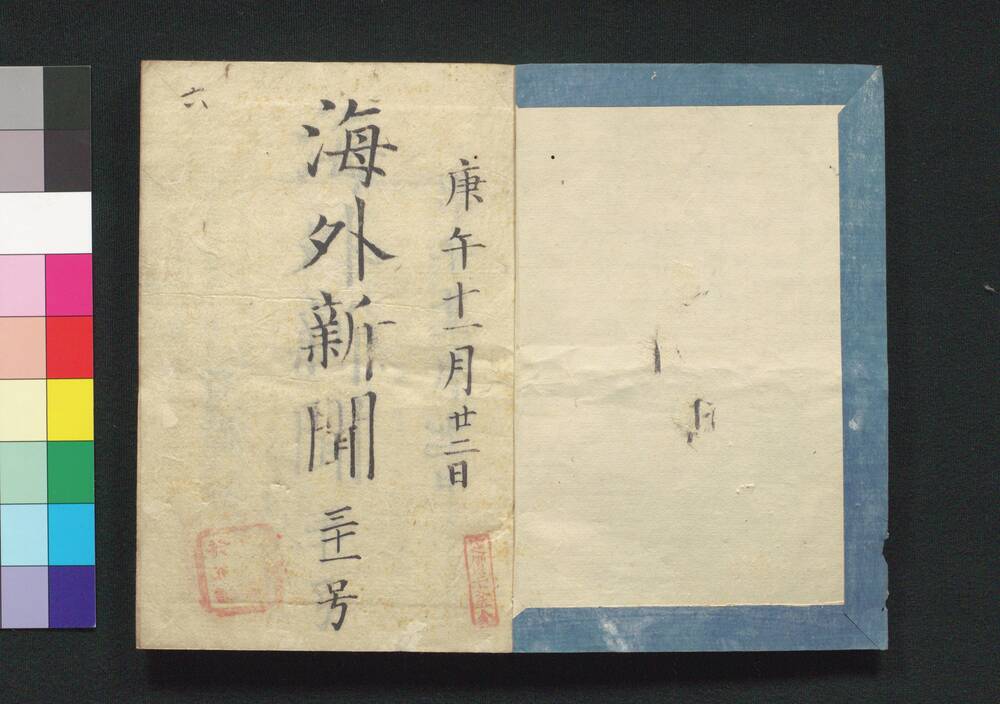 庚午十一月廿二日
海外新聞 三十一号
六